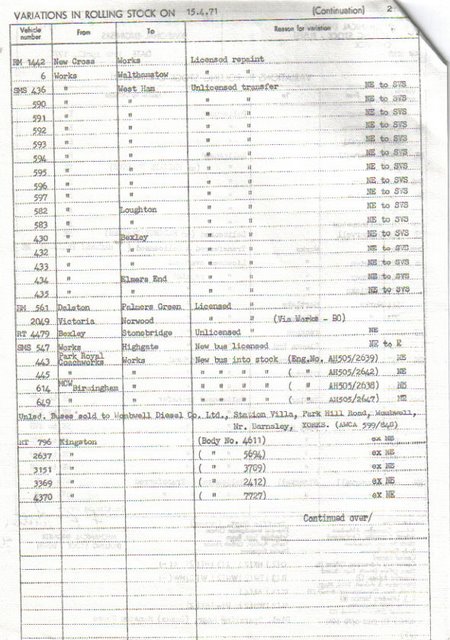 VARIATIONS IN ROLLING STOCK ON 15.4.71 (Continuation) 2
Vehicle number From To Reason for variation
RM 1442 New Cross Works Licensed repaint
6 Works Walthamstow " "
SMS 436 " West Ham Unlicensed transfer NE to SVS
590 " " " " NE to SVS
591 " " " " NE to SVS
592 " " " " NE to SVS
593 " " " " NE to SVS
594 " " " " NE to SVS
595 " " " " NE to SVS
596 " " " " NE to SVS
597 " " " " NE to SVS
582 " Loughton " " NE to SVS
583 " " " " NE to SVS
430 " Bexley " " NE to SVS
432 " " " " NE to SVS
433 " " " " NE to SVS
434 " Elmers End " " NE to SVS
435 " " " " NE to SVS
RM 561 Dalston Palmers Green Licensed "
2049 Victoria Norwood " " (Via Works - BO)
RT 4477 Bexley Stonebridge Unlicensed " NE
SMS 547 Works Highgate New bus licensed NE to E
443 Park Royal Coachworks Works New bus into stock (Eng.No. AH505/2639) NE
445 " " " " " ( " AH505/2642) NE
614 MCW Birmingham " " " " ( " AH505/2638) NE
649 " " " " " ( " AH505/2647) NE
Unlsd. Buses sold to Wombwell Diesel Co. Ltd., Station Villa, Park Hill Road, Wombwell,
Nr. Barnsley, YORKS. (AWCA 599/842)
RT 796 Kingston (Body No. 4611) ex NE
2637 " ( " 5694) ex NE
3151 " ( " 3709) ex NE
3369 " ( " 2412) ex NE
4370 " ( " 7727) ex NE
Continued over/